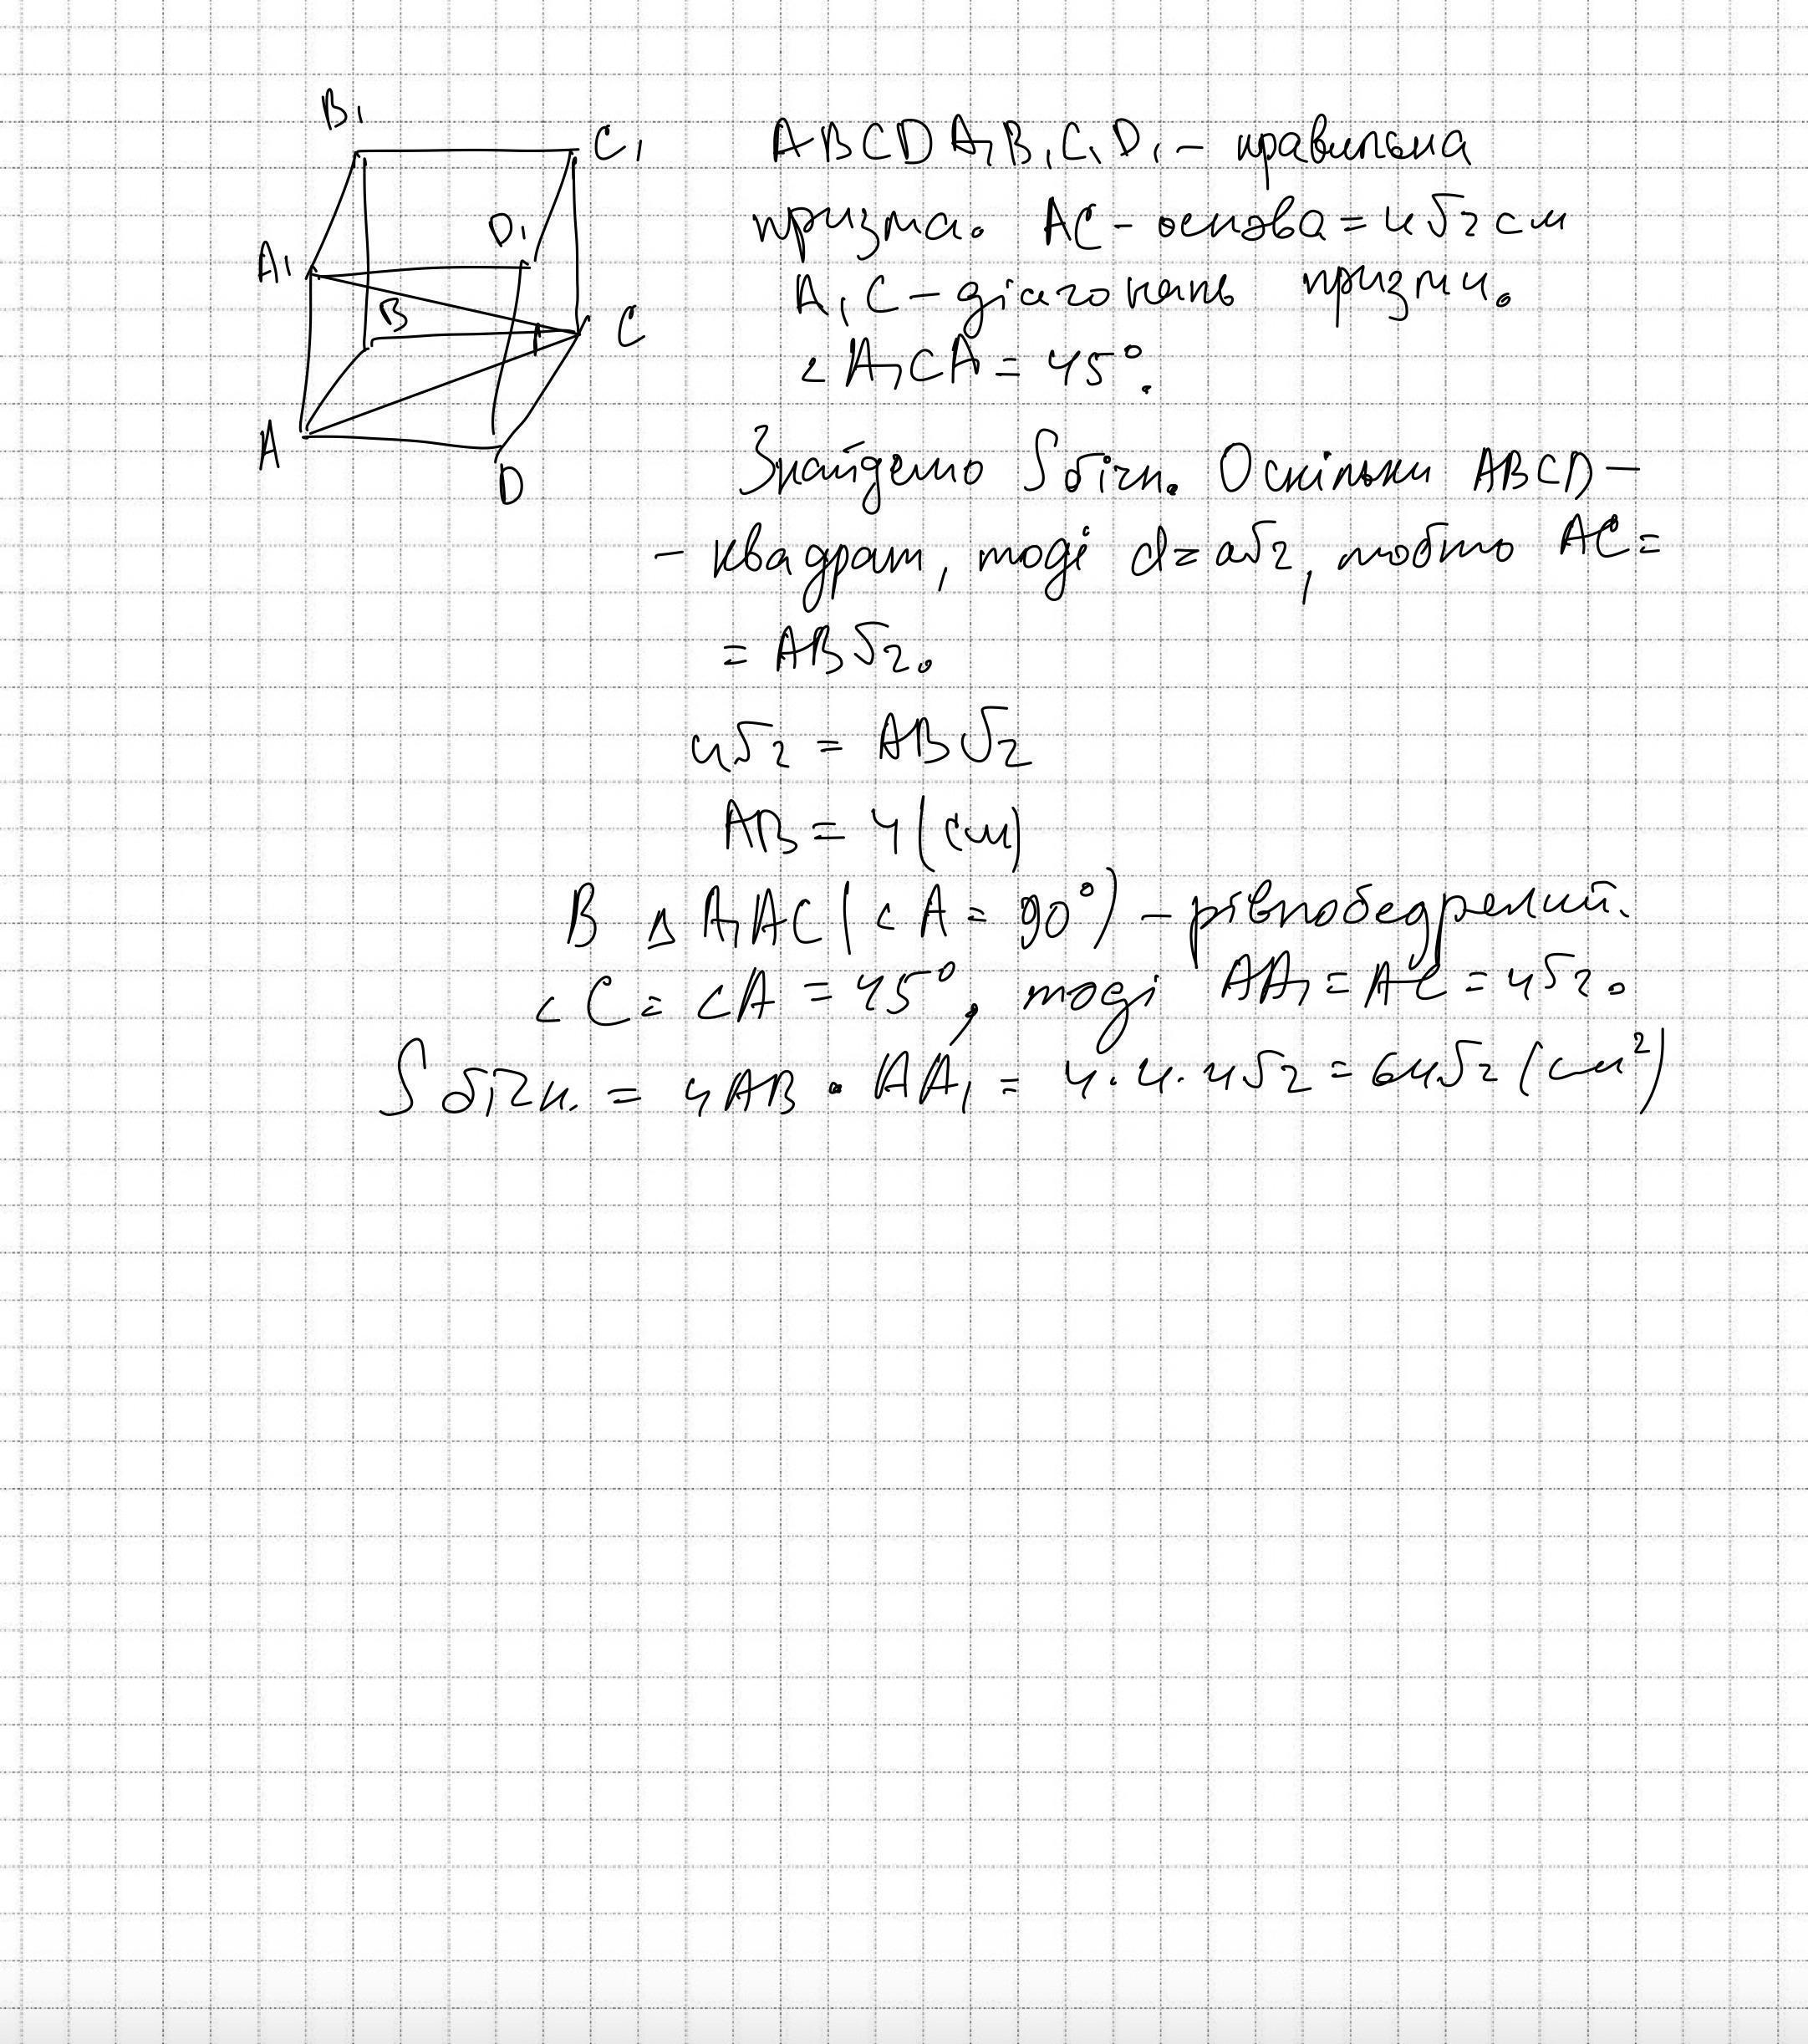 B₁
C₁
D₁
A₁
B
C
A
D
ABCDA₁B₁C₁D₁ – правильна
призма. AC – основа = 4√2 см
A₁C – діагональ призми.
∠A₁CA = 45°.
Знайдемо Sбічн. Оскільки ABCD –
– квадрат, тоді d = a√2, тобто AC =
= AB√2.
4√2 = AB√2
AB = 4 (см)
В △A₁AC (∠A = 90°) – рівнобедрений.
∠C = ∠A = 45°, тоді AA₁ = AC = 4√2.
Sбічн. = 4AB • AA₁ = 4·4·4√2 = 64√2 (см²)